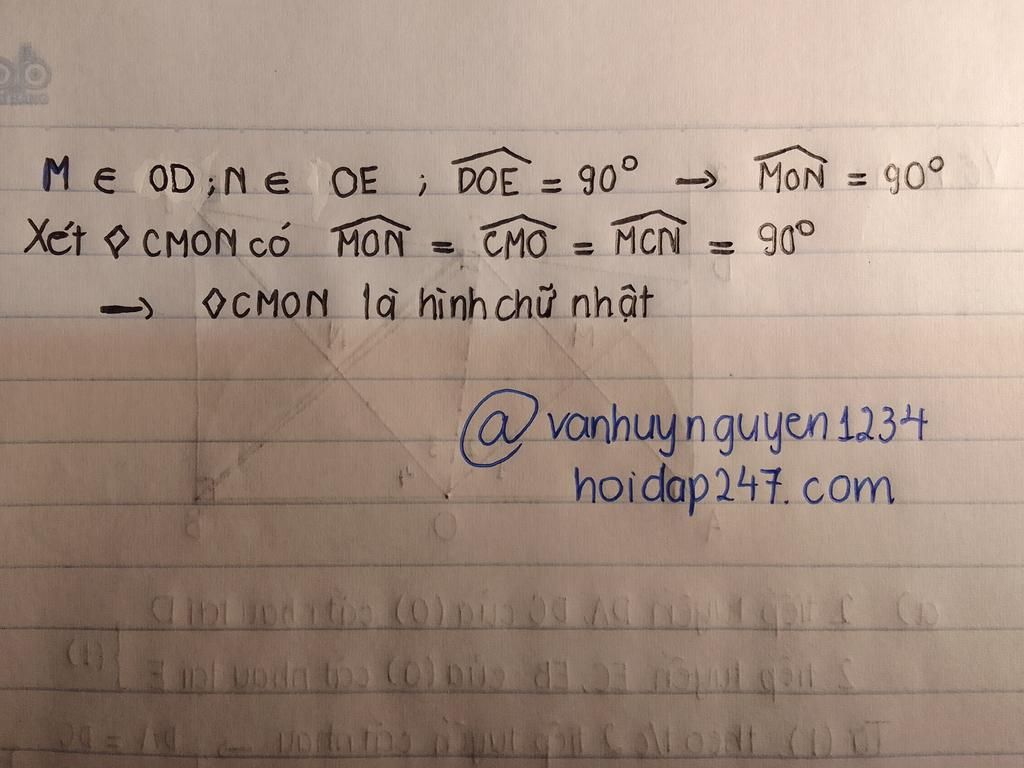 M ∈ OD ; N ∈ OE ; \widehat{DOE} = 90° → \widehat{MON} = 90°
Xét ◊ CMON có \widehat{MON} = \widehat{CMO} = \widehat{MCN} = 90°
→ ◊CMON là hình chữ nhật
@vanhuynguyen1234
hoidap247.com